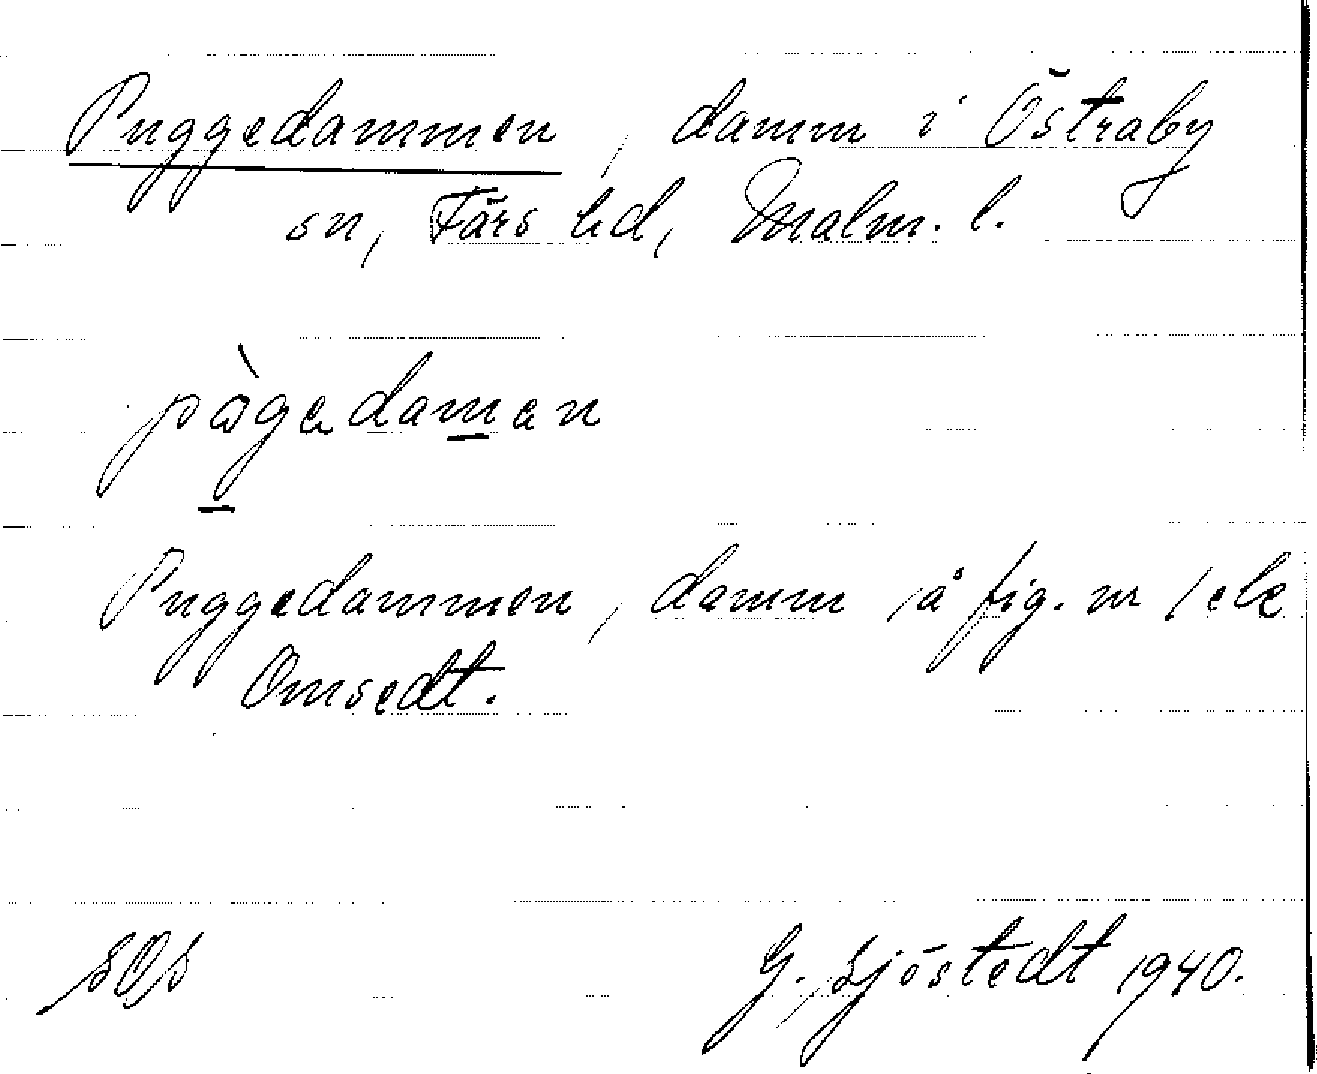 Puggedammen, damm i Östraby
sn, Färs hd, Malm. l.
pågedamen
Puggedammen, damm å fig. nr 1
Omsedt.
G. Sjöstedt 1940.